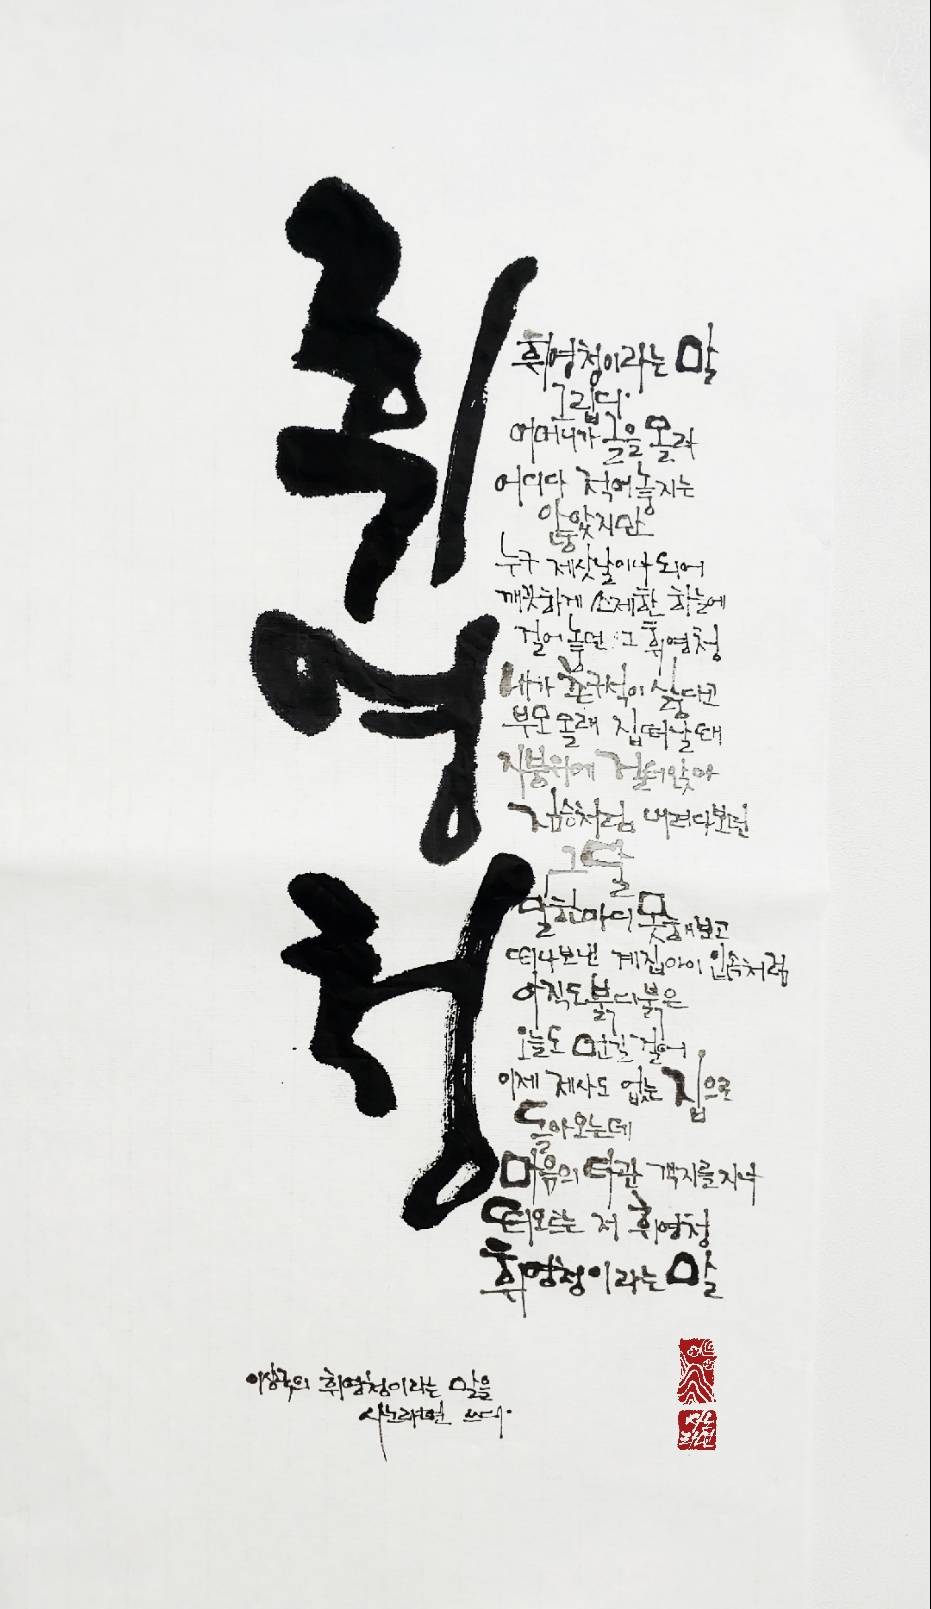 휘영청
휘영청이라는 말
그립다.
어머니가 글을 몰라
어디다 적어놓지는
않았지만
누구 제삿날이나 되어
깨끗하게 소제한 하늘에
걸어놓던 그 휘영청
내가 촌구석이 싫다고
부모 몰래 집 떠날 때
지붕위에 걸터앉아
짐승처럼 내려다보던
그 달
말한마디 못해보고
떠나보낸 계집아이 입속처럼
아직도 붉디붉은
오늘도 먼길 걸어
이제 제사도 없는 집으로
돌아오는데
마음의 타관 객지를 지나
떠오르는 저 휘영청
휘영청이라는 말
이상국의 휘영청이라는 말을
쓰다.